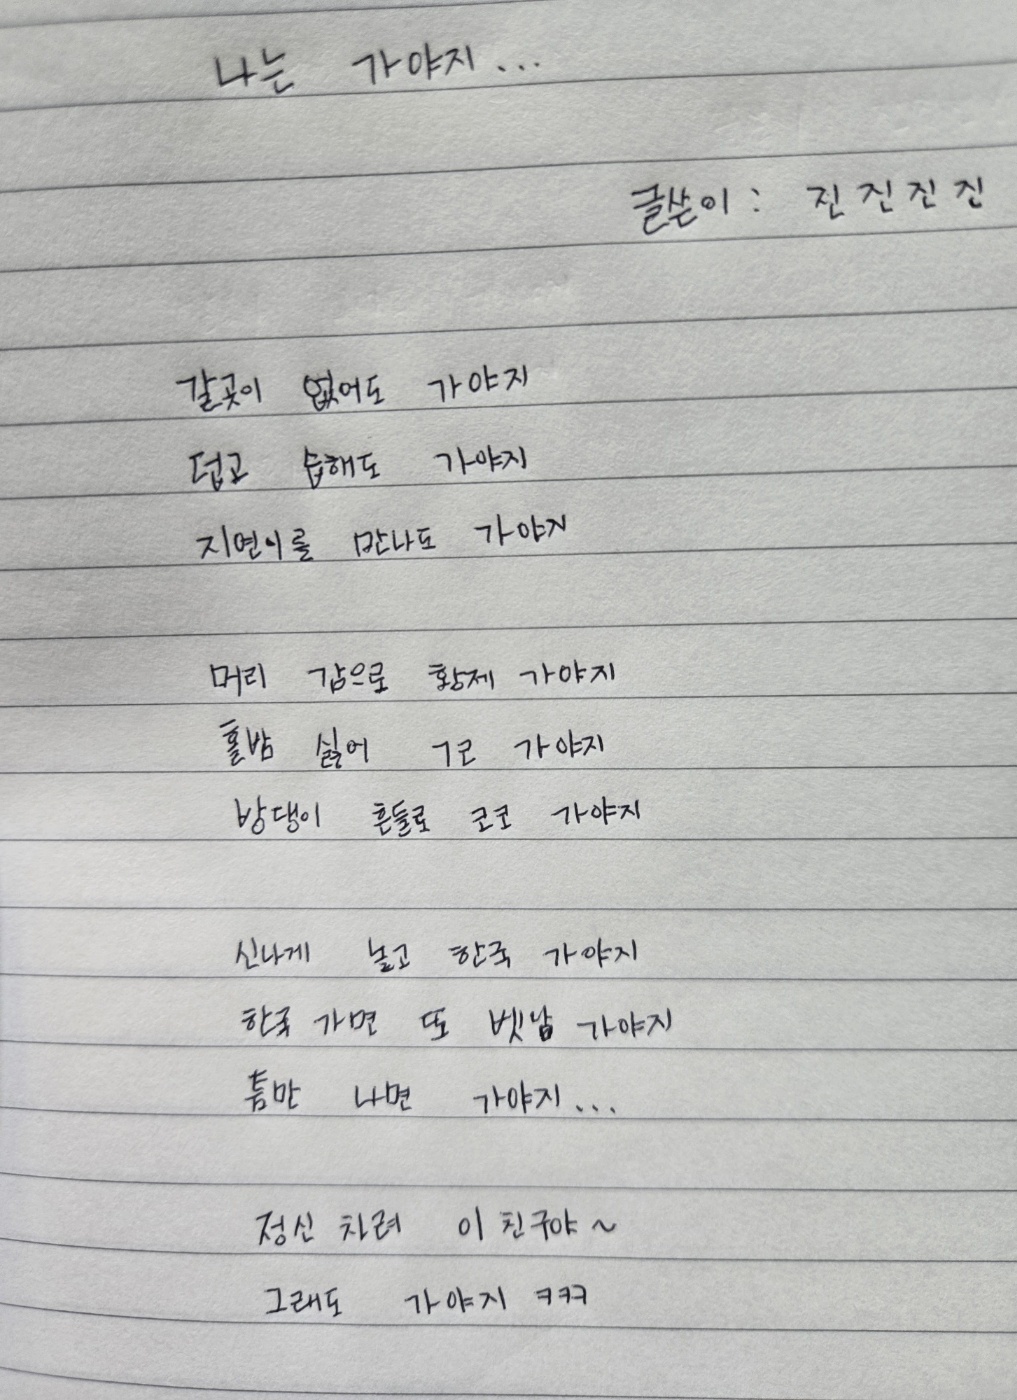 나는 가야지...
글쓴이 : 진진진진
갈곳이 없어도 가야지
덥고 습해도 가야지
지연이를 만나도 가야지
머리 감으로 황제 가야지
홀밤 싫어 ㄱ코 가야지
방댕이 흔들로 코코 가야지
신나게 놀고 한국 가야지
한국 가면 또 벳남 가야지
틈만 나면 가야지...
정신 차려 이 친구야~
그래도 가야지 ㅋㅋㅋ